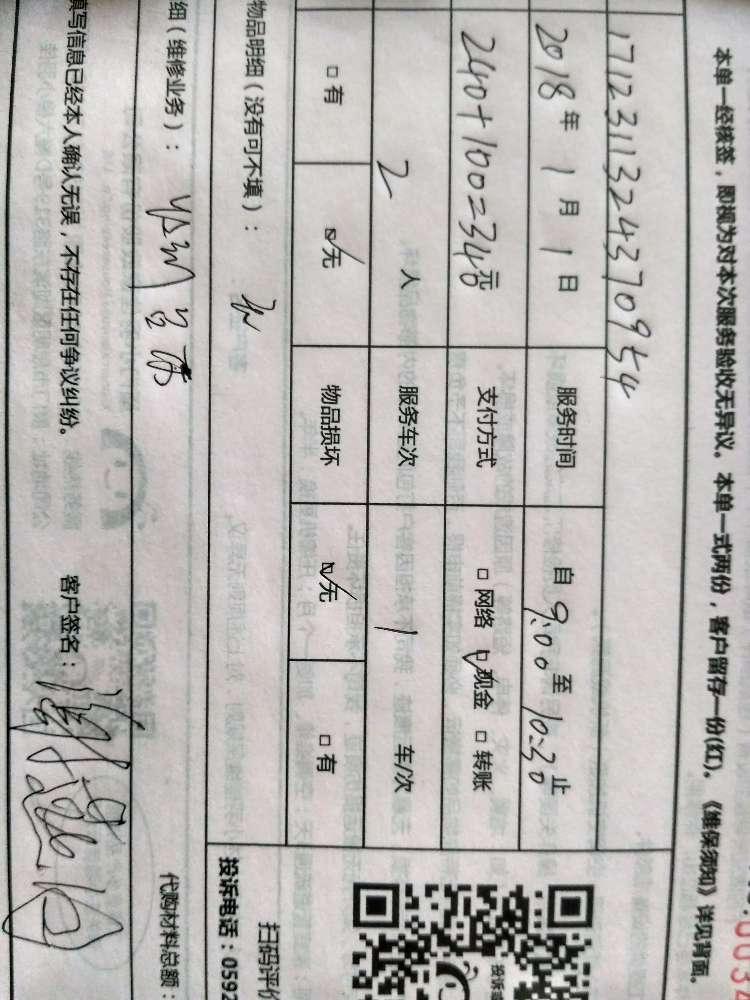 本单一经核签，即视为对本次服务验收无异议。本单一式两份，客户留存一份(红)。《维保须知》详见背面。
171231132437095​4
2018年1月1日 服务时间 自9:00至10:30止
240+100=340元 支付方式 □网络 ☑现金 □转账
2人 服务车次 1 车/次
□有 ☑无 物品损坏 ☑无 □有
物品明细（没有可不填）： 无
投诉电话：0592
扫码评价
细（维修业务）：
代购材料总额：
填写信息已经本人确认无误，不存在任何争议纠纷。 客户签名：